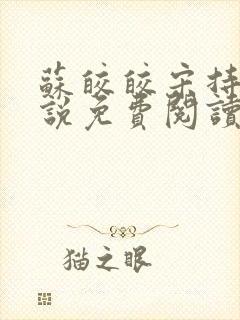 蘇皎皎宋持
說免費閱讀
猫之眼